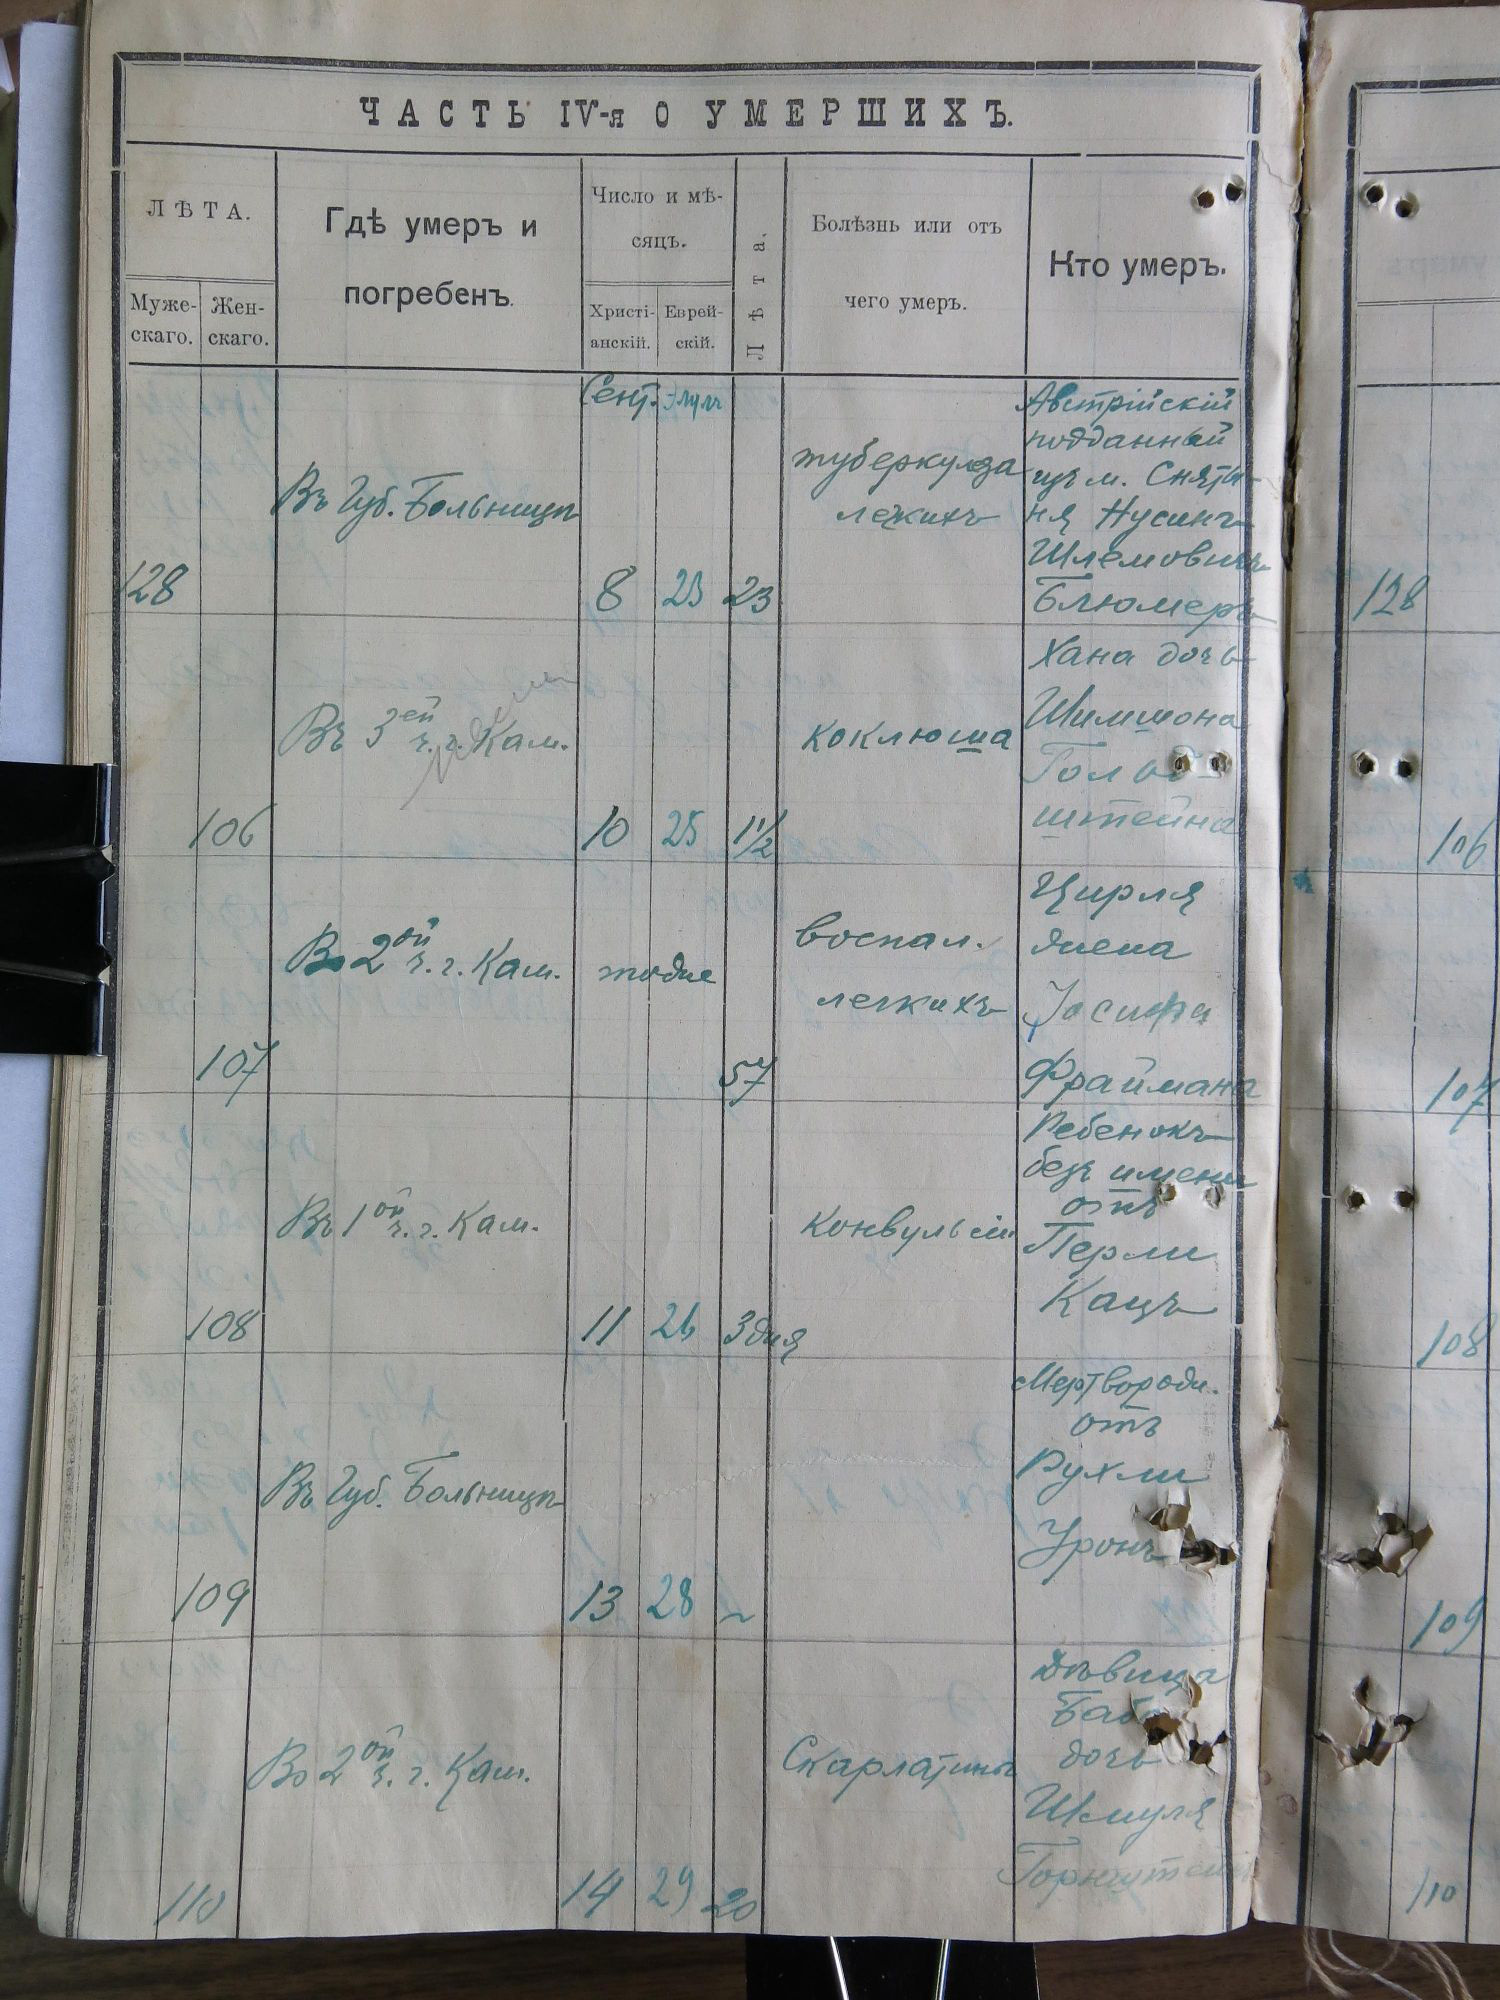 ЧАСТЬ IV-я О УМЕРШИХЪ.
ЛѢТА.
Муже-
скаго.
Жен-
скаго.
Гдѣ умеръ и
погребенъ.
Число и мѣ-
сяцъ.
Христі-
анскій.
Еврей-
скій.
Лѣта.
Болѣзнь или отъ
чего умеръ.
Кто умеръ.
Сент. Элулъ
128
Въ Губ. Больницѣ
8 23 23
туберкулеза
легкихъ
Австрійскій
подданный
изъ м. Сняты-
ня Нусинъ
Шлемовичъ
Блюмеръ
128
106
Въ 3ей ч. г. Кам.
10 25 1 1/2
коклюша
Хана дочь
Шимшона
Гольд
штейна
106
107
Во 2ой ч. г. Кам.
тодже
57
воспал.
легкихъ
Цирля
жена
Іосифа
Фраймана
107
108
Въ 1ой ч. г. Кам.
11 26 3 дня
конвульсіи
Ребенокъ
безъ имени
отъ
Перли
Кацъ
108
109
Въ Губ. Больницѣ
13 28 ~
Мертворожд.
отъ
Рухли
Уронъ
109
110
Во 2ой ч. г. Кам.
14 29 20
Скарлатины
Дѣвица
дочь
Шмуля
110